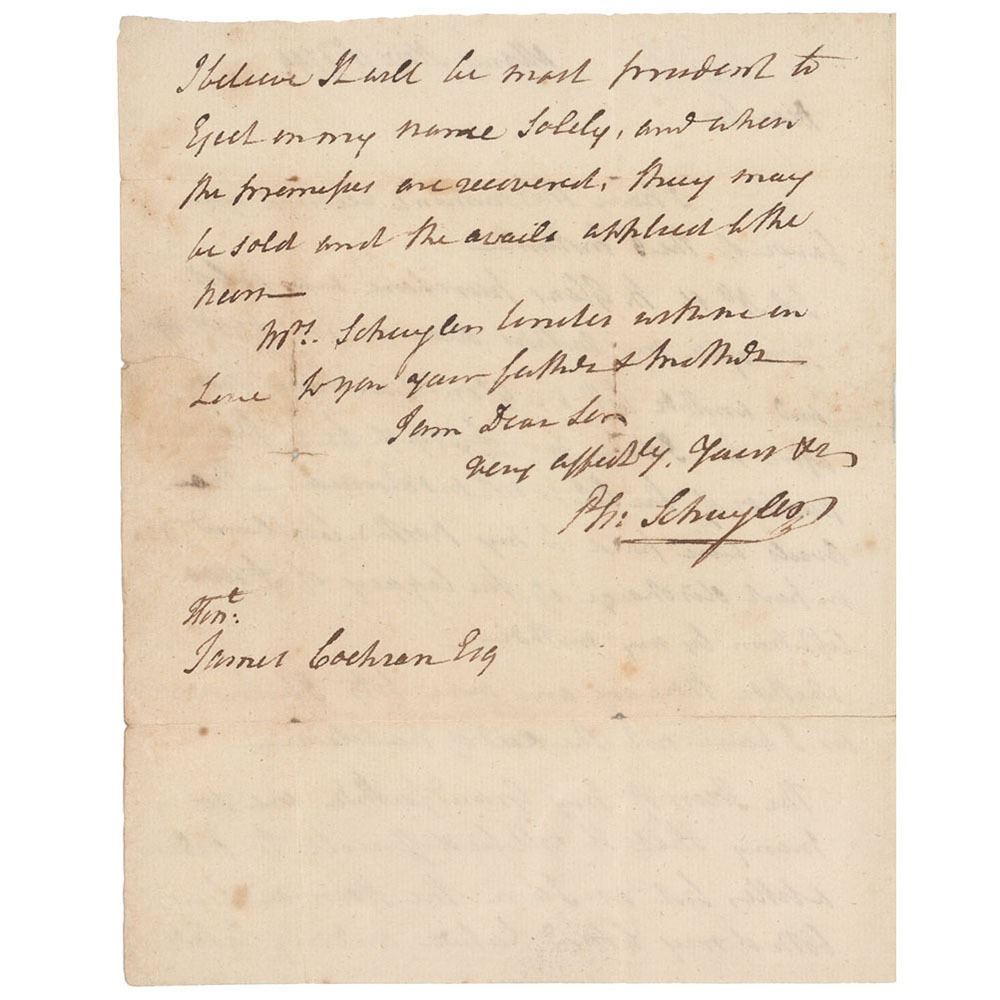 I believe It will be most prudent to
Eject in my name Solely, and when
the premises are recovered, they may
be sold and the avails applied to the
heirs
Mrs. Schuyler Unites with me in
Love to You your father & Mother
I am Dear Sir
very affectly. Yours &c
Ph: Schuyler
Hone:
James Cochran Esq